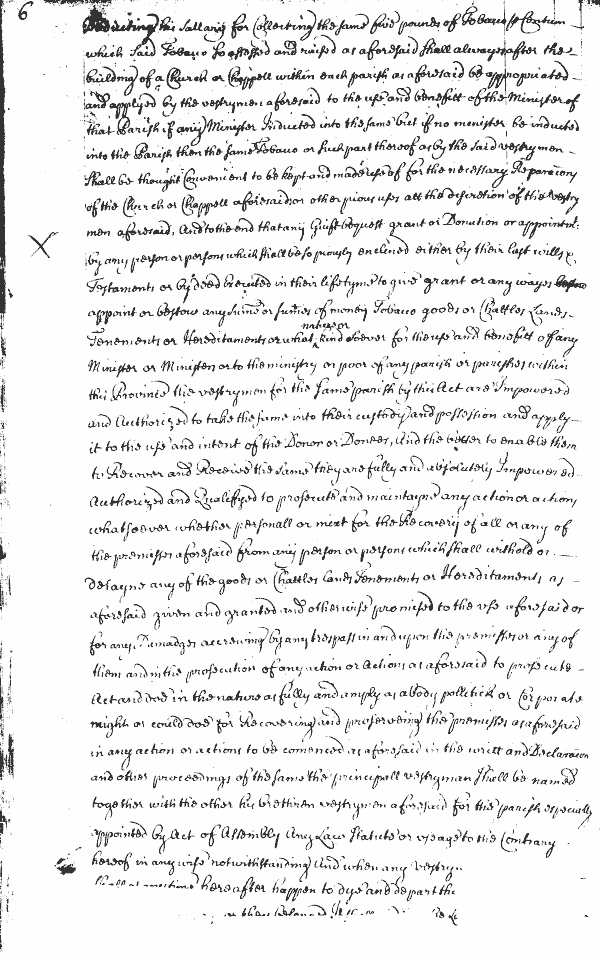 6
Deducting his Sallary for Collecting the same five pounds of Tobacco Centum
which said Tobaco so assessed and raised as aforesaid shall always after the
building of a Church or Chappell within each parish as aforesaid be appropriated
and applyed by the vestrymen aforesaid to the use and benefitt of the Minister of
that Parish if any Minister Inducted into the same but if no minister be inducted
into the Parish then the same Tobaco or such part thereof as by the said vestrymen
shall be thought Convenient to be kept and made use of for the necessary Reparacions
of the Church or Chappell aforesaid or other pious uses att the discretion of the vestry
men aforesaid, And to the end that any Guift bequest grant or Donation or appointmt.
by any person or persons which shall be so piously enclined either by their last wills &
Testaments or by deed Executed in their lifetyme to give grant or any wayes
appoint or bestow any sume or sumes of money Tobaco goods or Chattles Lands
Tenements or Hereditaments or what nature or kind soever for the use and benefitt of any
Minister or Ministers or to the ministry or poor of any parish or parishes within
this Province the vestrymen for the same parish by this Act are Impowered
and Authorized to take the same into their custody and possession and apply
it to the use and intent of the Donor or Donees, And the better to enable them
to Recover and Receive the same they are fully and absolutely Impowered
Authorized and Qualifyed to prosecute and maintayne any action or actions
whatsoever whether personall or mixt for the Recovery of all or any of
the premisses aforesaid from any person or persons which shall withold or
delayne any of the goods or Chattles Lands Tenements or Hereditaments as
aforesaid given and granted and otherwise promised to the use aforesaid or
for any Damadges accrewing by any trespass in and upon the premisses or any of
them and in the prosecution of any action or Actions as aforesaid to prosecute
Act and doe in the nature as fully and amply as a body pollitick or Corporate
might or could doe for Recovering and preserveing the premisses as aforesaid
in any action or actions to be comenced as aforesaid in the writt and Declaracon
and other proceedings of the same the principall vestryman shall be named
together with the other his brethren vestrymen aforesaid for the parish especially
appointed by Act of Assembly Any Law Statute or usage to the Contrary
hereof in any wise notwithstanding And when any vestry
shall at anytime hereafter happen to dye and depart the